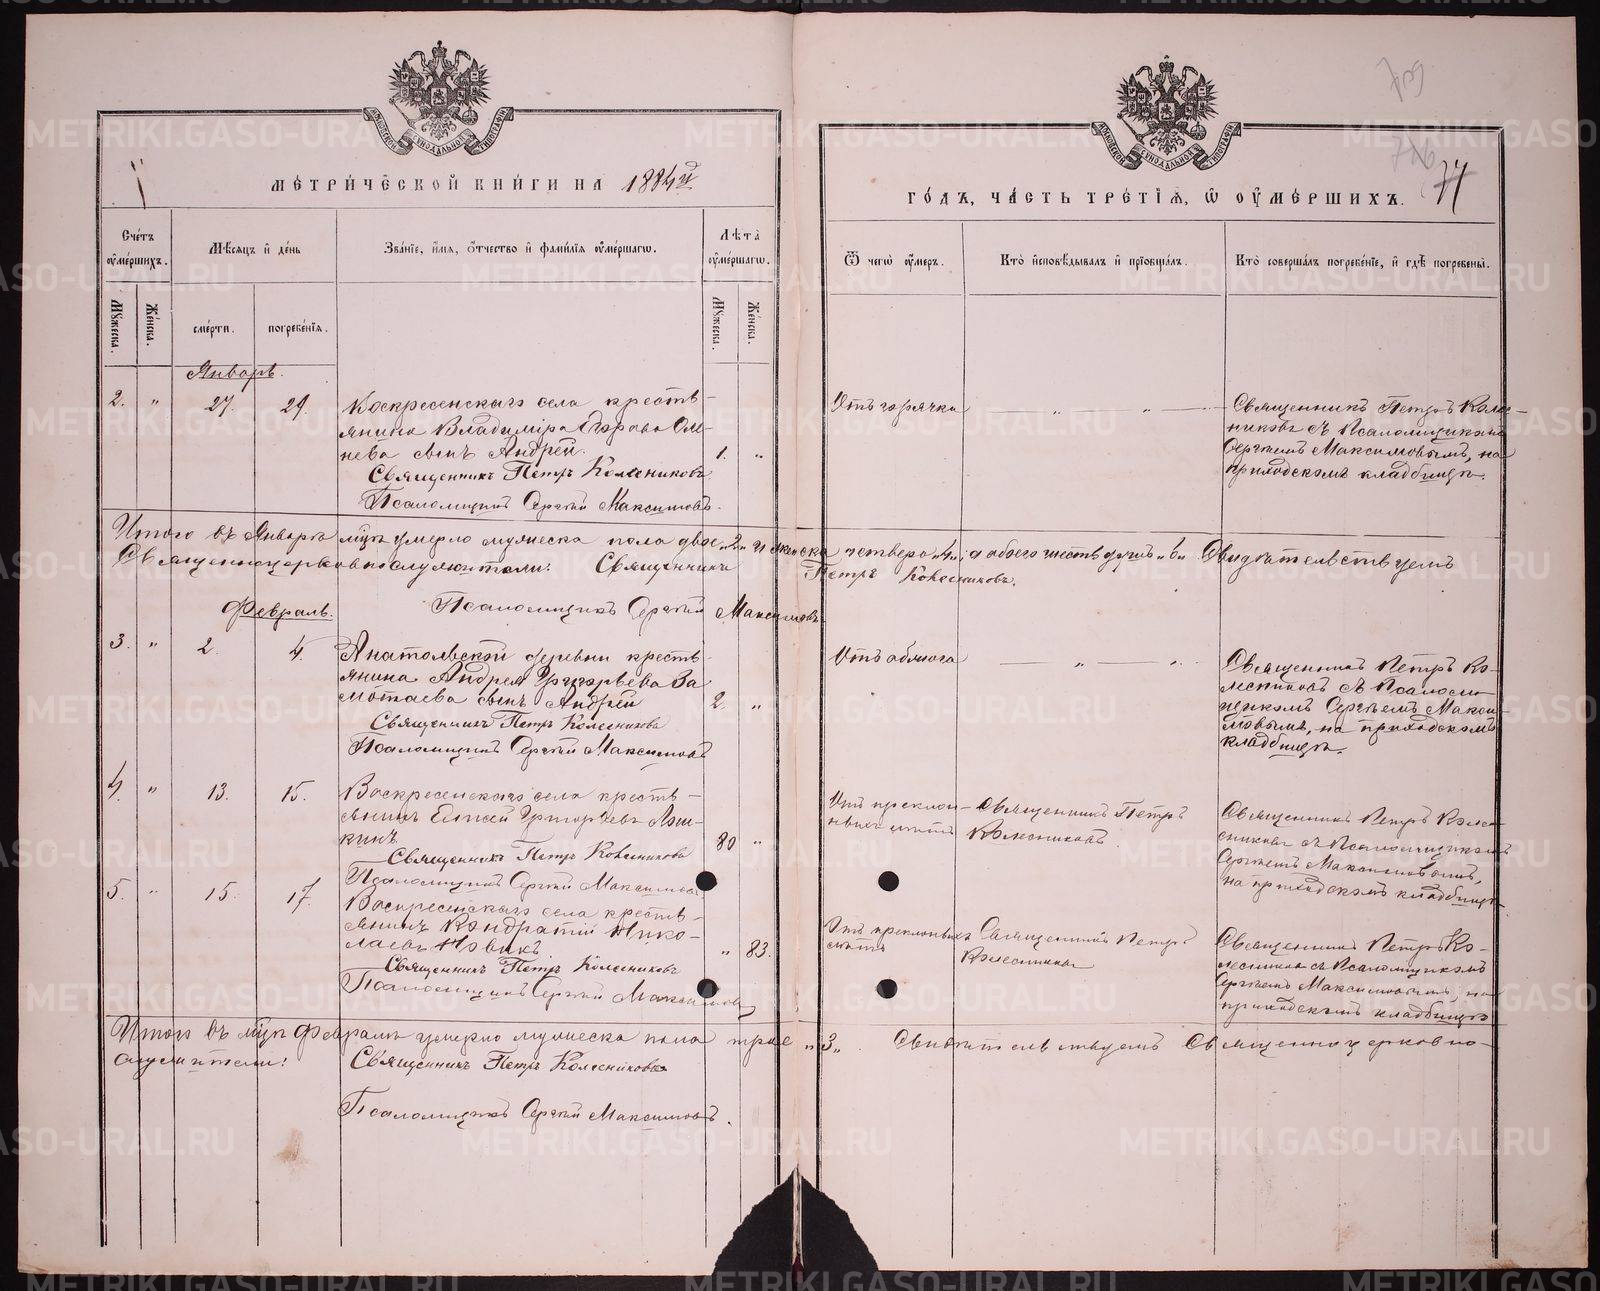 МЕТРИЧЕСКОЙ КНИГИ НА 1884й
ГОДЪ, ЧАСТЬ ТРЕТІЯ, Ѡ ОУМЕРШИХЪ.
Счетъ оумершихъ.
Мѣсяцъ и день
Званіе, имя, отчество и фамилія оумершагѡ.
Лѣта оумершагѡ.
Ѿ чегѡ оумеръ.
Кто исповѣдывалъ и пріобщалъ.
Кто совершалъ погребеніе, и гдѣ погребены.
Мужеска.
Женска.
смерти.
погребенія.
Мужеска.
Женска.
Январь.
2. " 27. 29.
Воскресенскаго села кресть-
янина Владиміра
сынъ Андрей. 1. "
Священникъ Петръ Колесниковъ
Псаломщикъ Сергѣй Максимовъ.
Отъ горячки
Священникъ Петръ Колес-
никовъ съ Псаломщикомъ
Сергѣемъ Максимовымъ, на
приходскомъ кладбищѣ.
Итого въ Январѣ м-цѣ умерло мужеска пола двое "2" и женска четверо "4", а обоего шесть душъ "6" Свидѣтельствуемъ
Священноцерковнослужители: Священникъ Петръ Колесниковъ.
Псаломщикъ Сергѣй Максимовъ
Февраль.
3. " 2. 4.
Анатольской деревни кресть-
янина Андрея Григорьева За
мотаева сынъ Андрей 2. "
Священникъ Петръ Колесниковъ
Псаломщикъ Сергѣй Максимовъ
Священникъ Петръ Ко-
лесниковъ съ Псаломщикомъ
Сергѣемъ Макси-
мовымъ, на приходскомъ
кладбищѣ.
4. " 13. 15.
Воскресенскаго села кресть-
янинъ Елисей Григорьевъ
80 "
Священникъ Петръ Колесниковъ
Псаломщикъ Сергѣй Максимовъ
Отъ преклон-
ныхъ лѣтъ
Священникъ Петръ
Колесниковъ.
Священникъ Петръ Коле-
сниковъ съ Псаломщикомъ
Сергѣемъ Максимовымъ,
на приходскомъ кладбищѣ.
5. " 15. 17.
Воскресенскаго села кресть-
янинъ Кондратій Нико-
лаевъ Новикъ " 83.
Священникъ Петръ Колесниковъ
Псаломщикъ Сергѣй Максимовъ
Отъ преклонныхъ
лѣтъ
Священникъ Петръ
Колесниковъ
Священникъ Петръ Ко-
лесниковъ съ Псаломщикомъ
Сергѣемъ Максимовымъ, на
приходскомъ кладбищѣ
Итого въ м-цѣ Февралѣ умерло мужеска пола трое "3" Свидѣтельствуемъ Священноцерковно-
служители: Священникъ Петръ Колесниковъ
Псаломщикъ Сергѣй Максимовъ.
METRIKI.GASO-URAL.RU